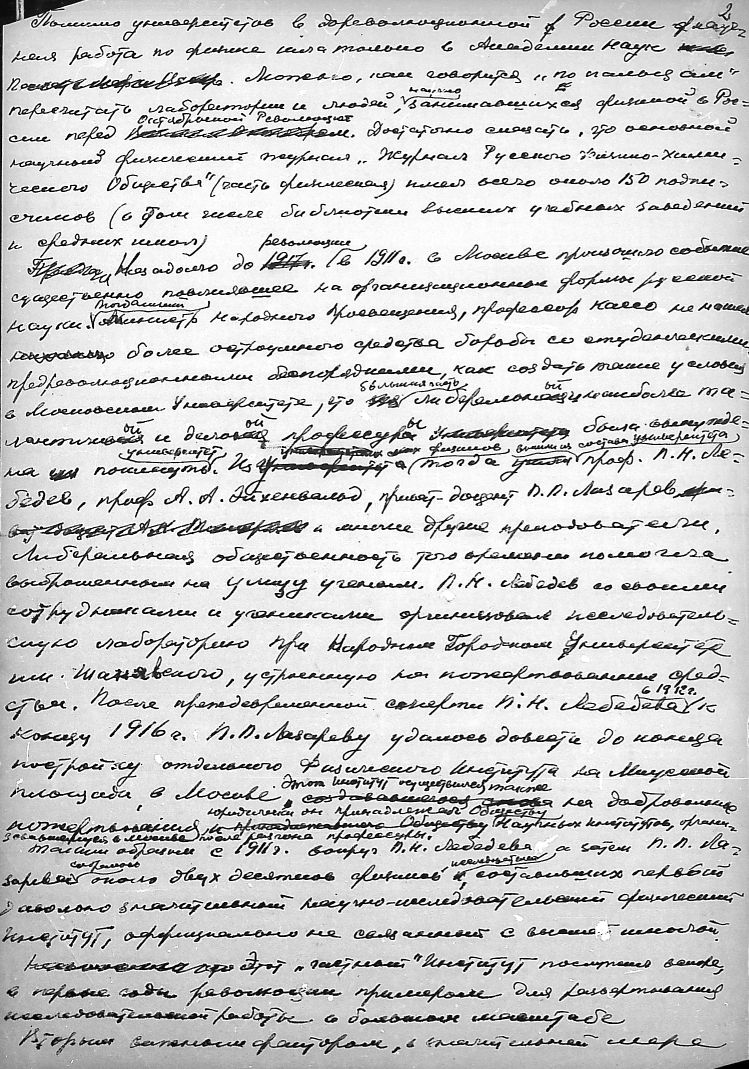 2
Помимо университетов в дореволюционной России науч-
ная работа по физике шла только в Академии Наук
Можно, как говорится, „по пальцам"
пересчитать лаборатории и людей, научно занимавшихся физикой в Рос-
сии перед Октябрьской Революцией. Достаточно сказать, что основной
научный физический журнал „Журнал Русского Физико-Хими-
ческого Общества" (часть физическая) имел всего около 150 подпи-
счиков (в том числе библиотеки высших учебных заведений
и средних школ)
Незадолго до 1917г. революции (в 1911г. в Москве произошло событие
существенно повлиявшее на организационные формы русской
науки. Тогдашний Министр Народного Просвещения, профессор Кассо не нашел
более остроумного средства борьбы со студенческими
предреволюционными беспорядками, как создать такие условия
в Московском Университете, что бо́льшая часть либеральной и наиболее та-
лантливой и деловой профессуры была вынужде-
на покинуть университет. Из физиков тогда вышли из состава университета проф. П. Н. Ле-
бедев, проф. А. А. Эйхенвальд, приват-доцент П. П. Лазарев
и многие другие преподаватели.
Либеральная общественность того времени помогла
выброшенным на улицу ученым. П. Н. Лебедев со своими
сотрудниками и учениками организовал исследователь-
скую лабораторию при Народном Городском Университете
им. Шанявского, устроенную на пожертвованные сред-
ства. После преждевременной смерти П. Н. Лебедева в 1912г. к
концу 1916 г. П. П. Лазареву удалось довести до конца
постройку отдельного Физического Института на Миусской
площади в Москве. Этот институт осуществился также на добровольные
пожертвования, юридически он принадлежал Обществу Научных институтов, органи-
зовавшемуся в Москве после разгона профессуры.
Таким образом с 1911г. вокруг П. Н. Лебедева, а затем П. П. Ла-
зарева собралось около двух десятков физиков составивших первый
довольно значительный научно-исследовательский физический
Институт, официально не связанный с высшей школой.
Этот „частный" Институт послужил
в первые годы революции примером для развертывания
исследовательской работы в большом масштабе
Вторым важным фактором, в значительной мере